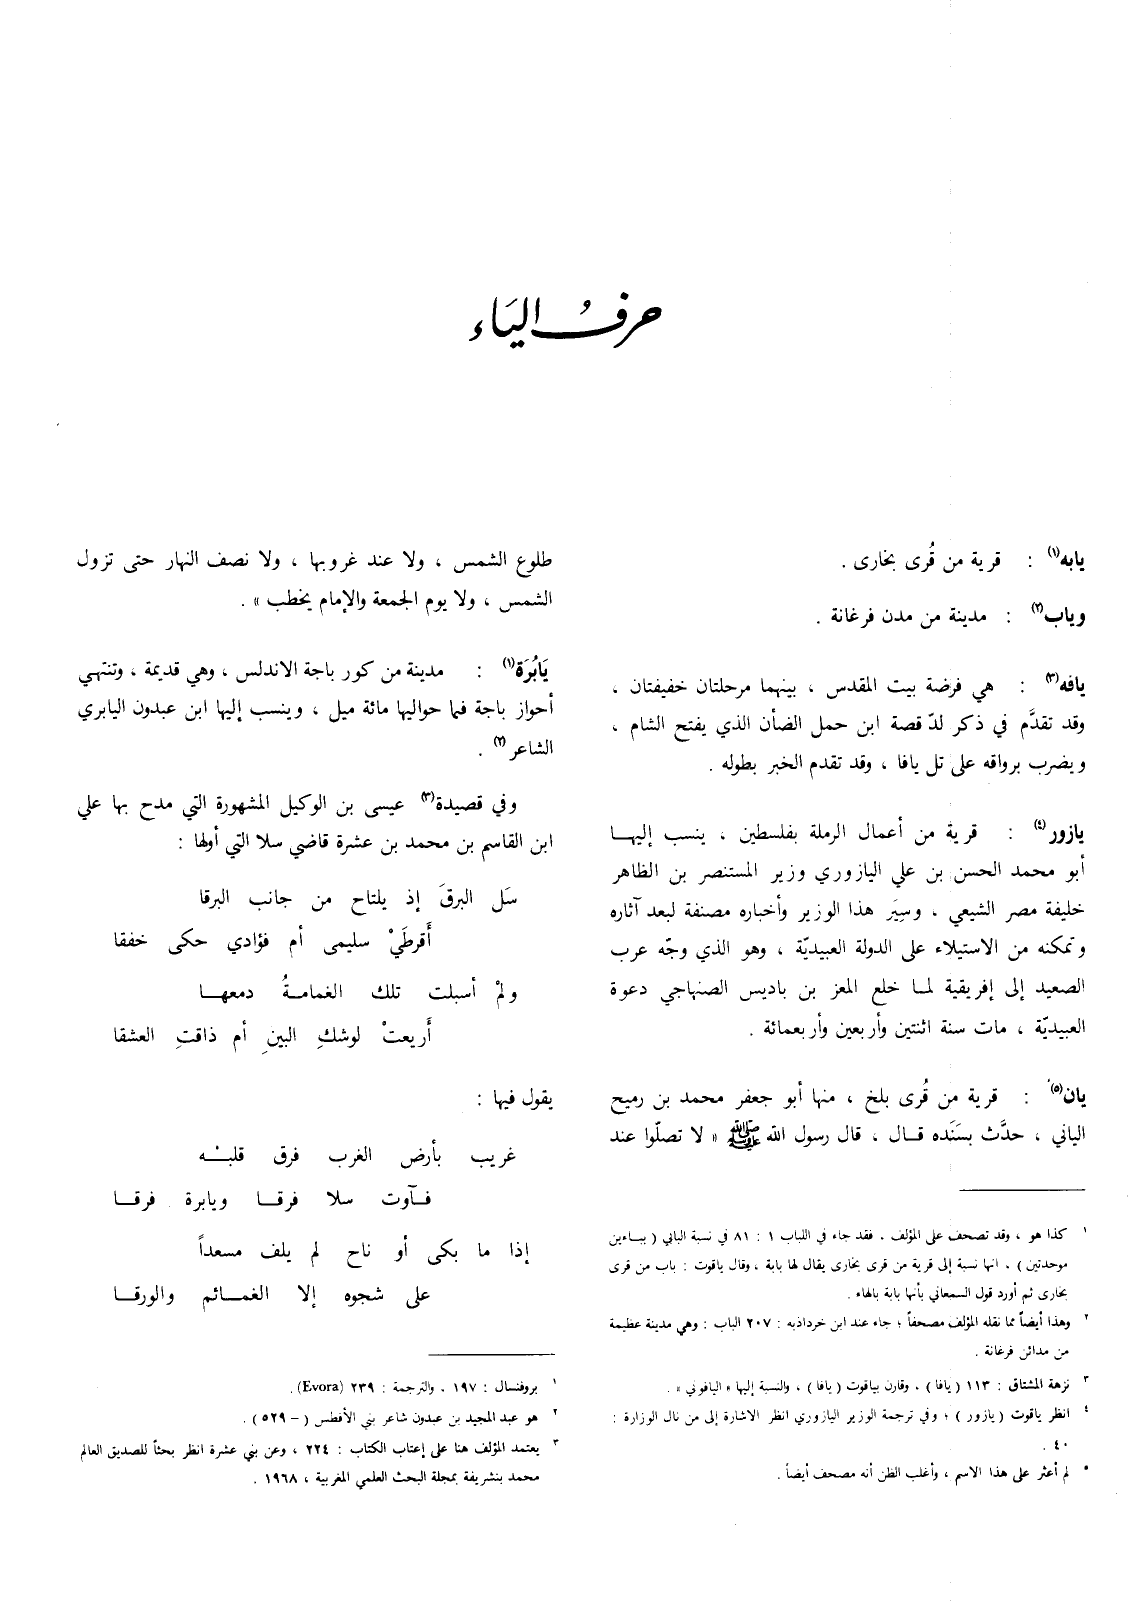 حرفُ اليَاء
يابه(١) : قرية من قُرى بخارى .
وياب(٢) : مدينة من مدن فرغانة .
يافه(٣) : هي فرضة بيت المقدس ، بينهما مرحلتان خفيفتان ،
وقد تقدَّم في ذكر لدّ قصة ابن حمل الضأن الذي يفتح الشام ،
ويضرب برواقه على تل يافا ، وقد تقدم الخبر بطوله .
يازور(٤) : قرية من أعمال الرملة بفلسطين ، ينسب إليها
أبو محمد الحسن بن علي اليازوري وزير المستنصر بن الظاهر
خليفة مصر الشيعي ، وسِيَر هذا الوزير وأخباره مصنفة لبعد آثاره
وتمكنه من الاستيلاء على الدولة العبيديّة ، وهو الذي وجّه عرب
الصعيد إلى إفريقية لما خلع المعز بن باديس الصنهاجي دعوة
العبيديّة ، مات سنة اثنتين وأربعين وأربعمائة .
يان(٥) : قرية من قُرى بلخ ، منها أبو جعفر محمد بن رميح
الياني ، حدَّث بسَنَده قال ، قال رسول الله ﷺ « لا تصلّوا عند
١ كذا هو ، وقد تصحف على المؤلف ، فقد جاء في اللباب ١ : ٨١ في نسبة البابي ( بباءين
موحدتين ) ، انها نسبة إلى قرية من قرى بخارى يقال لها بابة ، وقال ياقوت : باب من قرى
بخارى ثم أورد قول السمعاني بأنها بابة بالهاء .
٢ وهذا أيضاً مما نقله المؤلف مصحفاً ؛ جاء عند ابن خرداذبه : ٢٠٧ الباب : وهي مدينة عظيمة
من مدائن فرغانة .
٣ نزهة المشتاق : ١١٣ ( يافا ) ، وقارن بياقوت ( يافا ) ، والنسبة إليها « اليافوني » .
٤ انظر ياقوت ( يازور ) ؛ وفي ترجمة الوزير اليازوري انظر الاشارة إلى من نال الوزارة :
٤٠ .
٥ لم أعثر على هذا الاسم ، وأغلب الظن أنه مصحف أيضاً .
طلوع الشمس ، ولا عند غروبها ، ولا نصف النهار حتى تزول
الشمس ، ولا يوم الجمعة والإمام يخطب » .
يَابُرَة(١) : مدينة من كور باجة الاندلس ، وهي قديمة ، وتنتهي
أحواز باجة فيما حواليها مائة ميل ، وينسب إليها ابن عبدون اليابري
الشاعر(٢) .
وفي قصيدة(٣) عيسى بن الوكيل المشهورة التي مدح بها علي
ابن القاسم بن محمد بن عشرة قاضي سلا التي أولها :
سَل البرقَ إذ يلتاح من جانب البرقا
أَقرطَيْ سليمى أم فؤادي حكى خفقا
ولمْ أسبلت تلك الغمامةُ دمعها
أَريعتْ لوشكِ البينِ أم ذاقتِ العشقا
يقول فيها :
غريب بأرض الغرب فرق قلبه
فآوت سلا فرقا ويابرة فرقا
إذا ما بكى أو ناح لم يلف مسعداً
على شجوه إلا الغمائم والورقا
١ بروفنسال : ١٩٧ ، والترجمة : ٢٣٩ (Evora).
٢ هو عبد المجيد بن عبدون شاعر بني الأفطس ( – ٥٢٩ ) .
٣ يعتمد المؤلف هنا على إعتاب الكتاب : ٢٢٤ ، وعن بني عشرة انظر بحثاً للصديق العالم
محمد بنشريفة بمجلة البحث العلمي المغربية ، ١٩٦٨ .